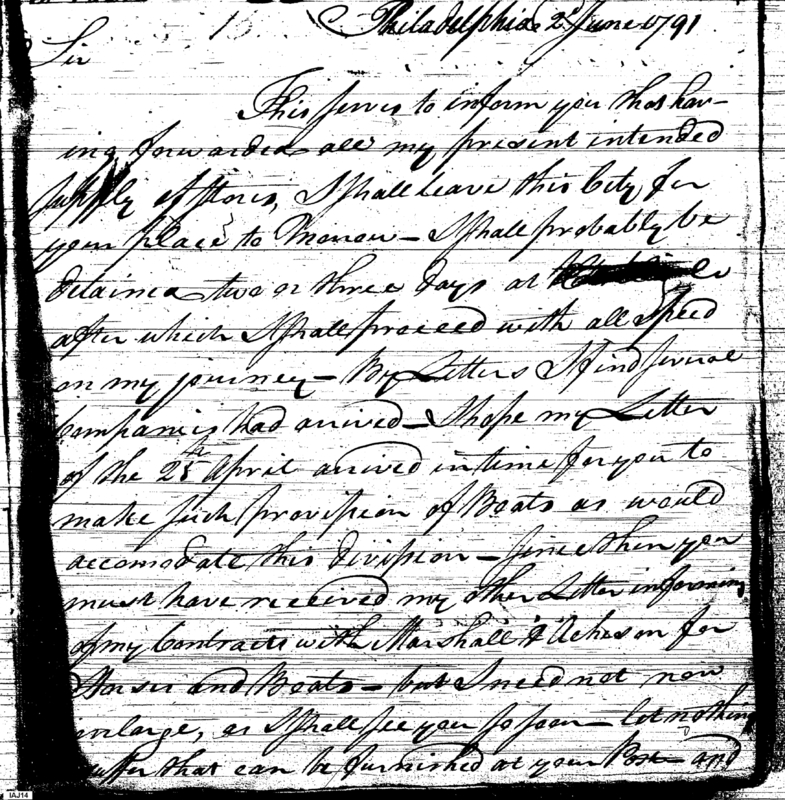 Philadelphia 2d June 1791
Sir
This serves to inform you that hav-
ing forwarded all my present intended
supply of stores, I shall leave this City for
your place to Morrow – I shall probably be
detained two or three days at
after which I shall proceed with all speed
on my journey – By Letters I find several
Companies had arived – I hope my Letter
of the 25th April arived in time for you to
make such provision of Boats as would
accomodate this division – since then you
must have received my other Letter informing
of my Contracts with Marshall & Acheson for
Horses and Boats – but I need not now
enlarge, as I shall see you so soon – let nothing
suffer that can be furnished at your Post – and
IAJ14